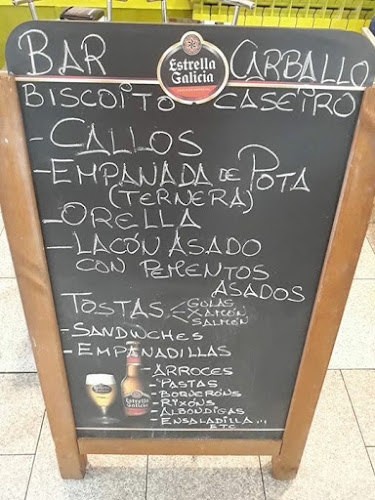 BAR Estrella Galicia CARBALLO
BISCOITO CASEIRO
- CALLOS
- EMPANADA DE POTA
(TERNERA)
- ORELLA
- LACÓN ASADO
CON PEMENTOS
ASADOS
TOSTAS GULAS
XAMÓN
SALMÓN
- SANDWCHES
- EMPANADILLAS
- ARROCES
- PASTAS
- BOQUERÓNS
- RIXÓNS
- ALBONDIGAS
- ENSALADILLA...
ETC
Estrella
Galicia